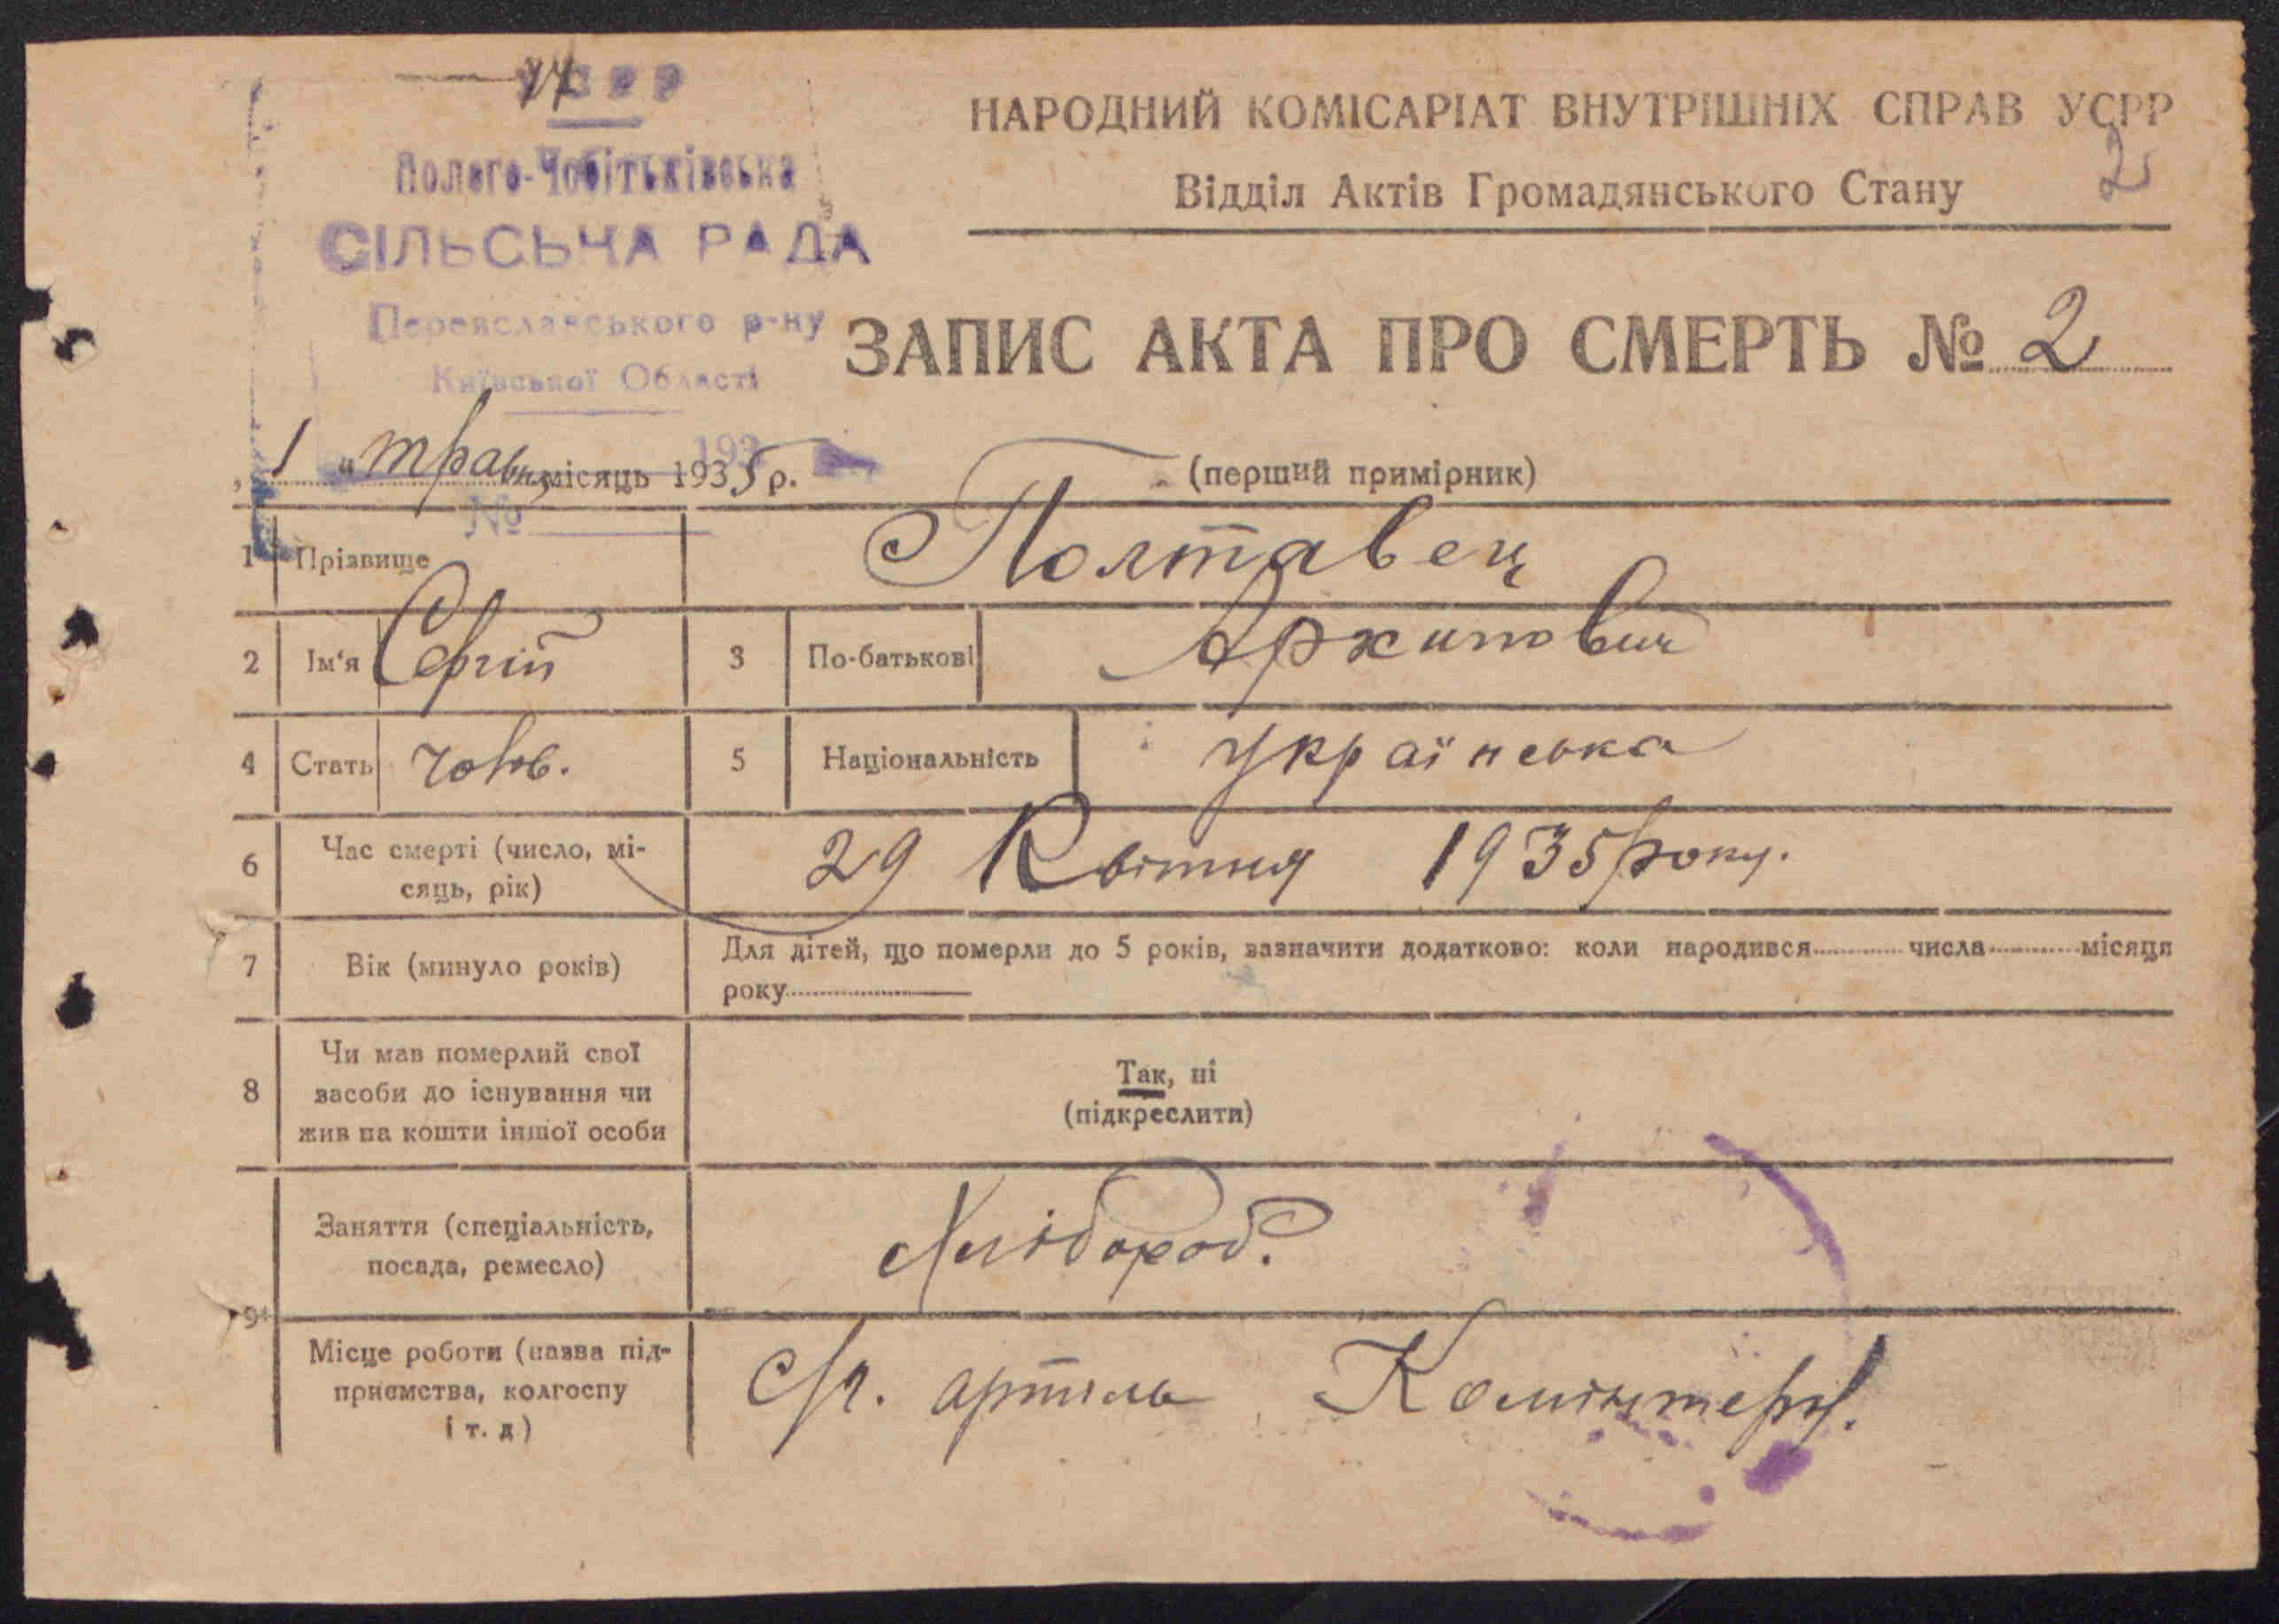 УСРР
Полого-Чобітьківська
СІЛЬСЬКА РАДА
Переяславського р-ну
Київської Області
193
№
НАРОДНИЙ КОМІСАРІАТ ВНУТРІШНІХ СПРАВ УСРР
2
Відділ Актів Громадянського Стану
ЗАПИС АКТА ПРО СМЕРТЬ № 2
„ 1 " травня місяць 1935 р.
(перший примірник)
1 Прізвище Полтавец
2 Ім'я Сергій 3 По-батькові Архипович
4 Стать чолов. 5 Національність українська
6 Час смерті (число, мі-
сяць, рік) 29 Квітня 1935 року.
7 Вік (минуло років) Для дітей, що померли до 5 років, зазначити додатково: коли народився числа місяця
року
8 Чи мав померлий свої
засоби до існування чи
жив на кошти іншої особи
Так, ні
(підкреслити)
9 Заняття (спеціальність,
посада, ремесло) Хлібороб.
Місце роботи (назва під-
приємства, колгоспу
і т. д) С/г. артиль Комінтерн.